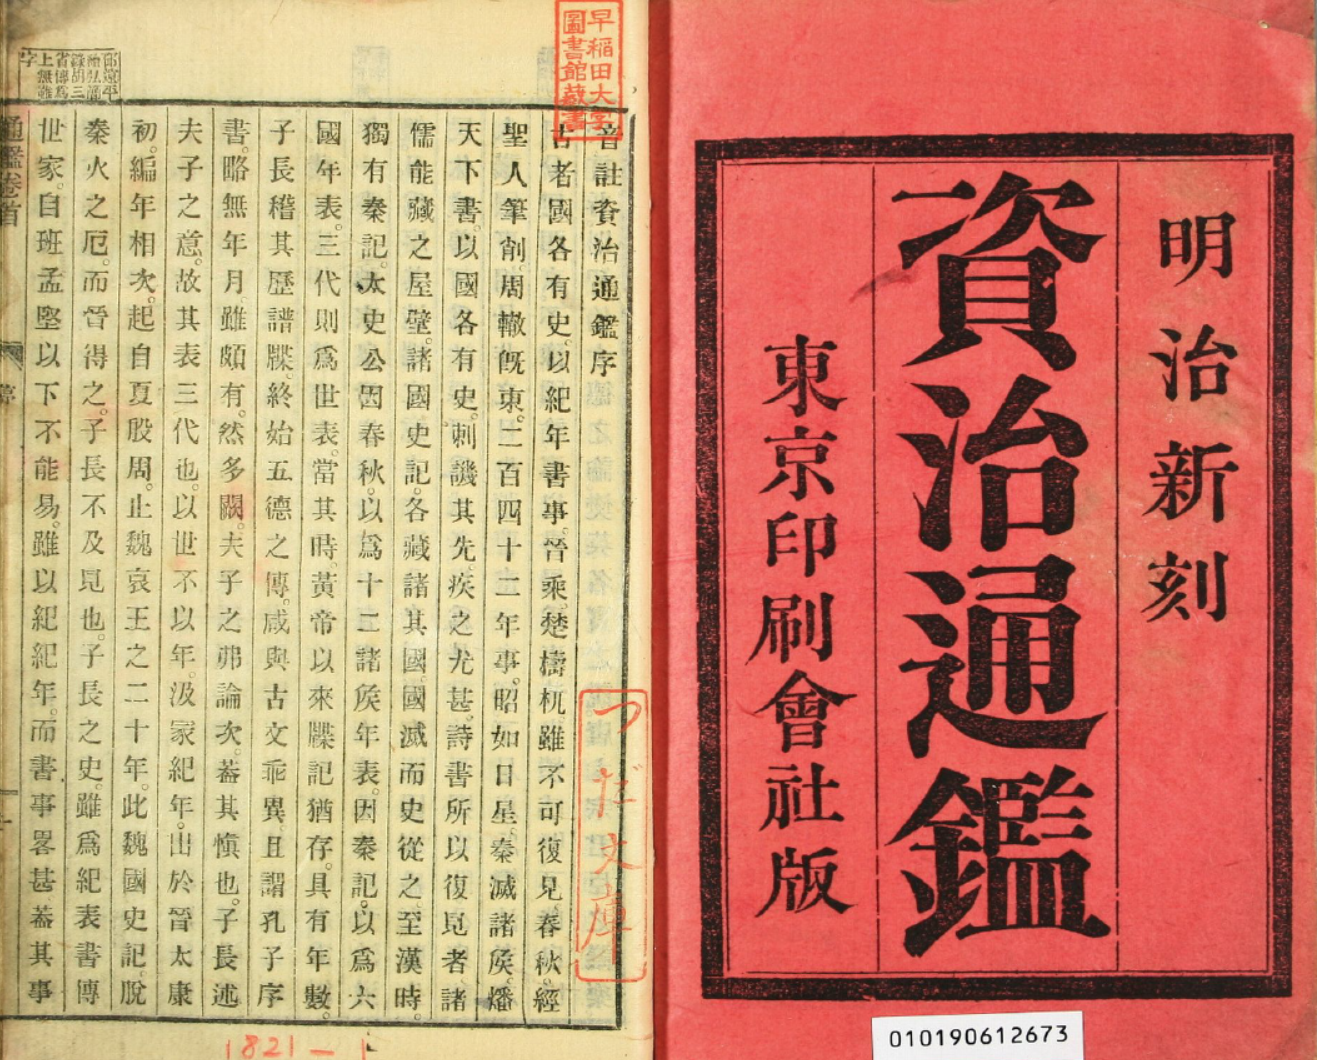 明治新刻
資治通鑑
東京印刷會社版
010190612673
早稲田大学
圖書館蔵書
音註資治通鑑序
古者國各有史。以紀年書事。晉乘。楚檮杌。雖不可復見。春秋。經
聖人筆削。周轍旣東。二百四十二年事。昭如日星。秦滅諸矦。燔
天下書。以國各有史。刺譏其先。疾之尤甚。詩書所以復見者。諸
儒能藏之屋壁。諸國史記。各藏諸其國。國滅而史從之。至漢時。
獨有秦記。太史公因春秋。以爲十二諸矦年表。因秦記。以爲六
國年表。三代則爲世表。當其時。黃帝以來牒記猶存。具有年數。
子長稽其歷譜牒。終始五德之傳。咸與古文乖異。且謂孔子序
書。略無年月。雖頗有。然多闕。夫子之弗論次。蓋其愼也。子長述
夫子之意。故其表三代也。以世不以年。汲冢紀年。出於晉太康
初。編年相次。起自夏殷周。止魏哀王之二十年。此魏國史記。脫
秦火之厄。而晉得之。子長不及見也。子長之史。雖爲紀表書傳
世家。自班孟堅以下不能易。雖以紀紀年。而書事畧甚。蓋其事
通鑑卷首
序
一
つだ文庫
1821-1